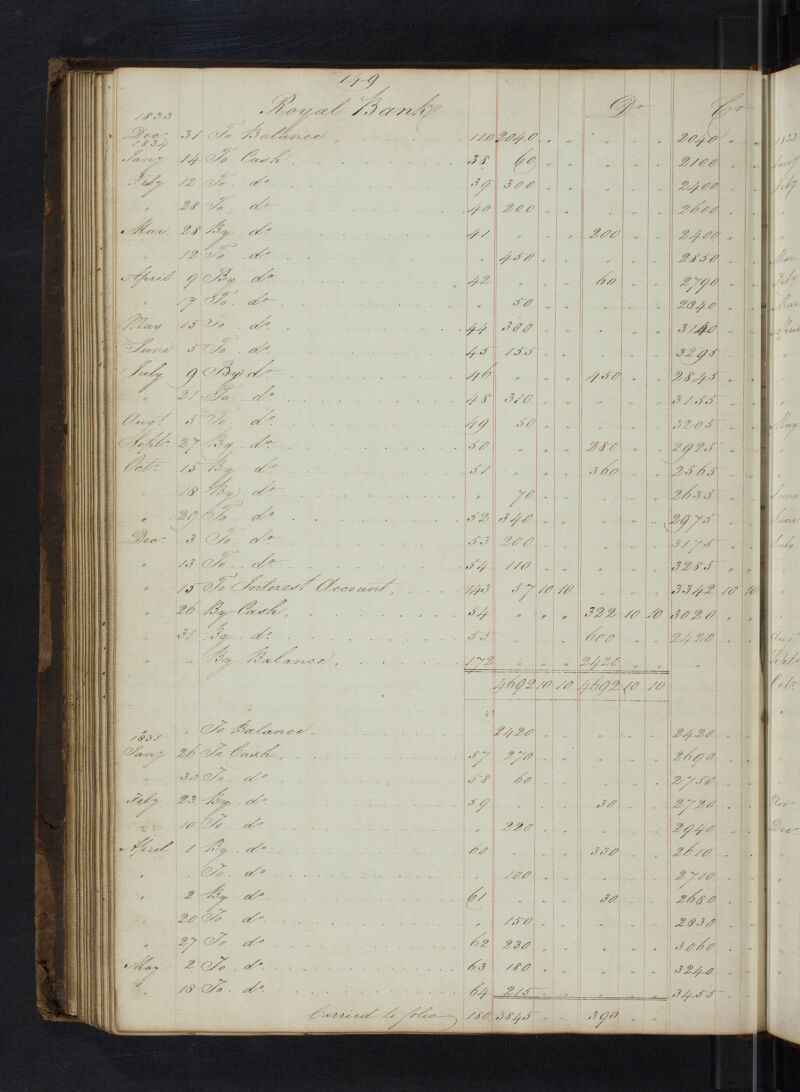 149
Royal Bank Dr Cr
1833
Decr 31 To Balance 110 2040 2040
1834
Jany 14 To Cash 38 60 2100
Feby 12 To do 39 300 2400
" 28 To do 40 200 2600
Mar. 28 By do 41 200 2400
" 12 To do " 450 2850
April 9 By do 42 60 2790
" 17 To do " 50 2840
May 15 To do 44 300 3140
June 5 To do 45 155 3295
July 9 By do 46 450 2845
" 21 To do 48 310 3155
Augt 5 To do 49 50 3205
Septr 27 By do 50 280 2925
Octr 15 By do 51 360 2565
" 18 By do " 70 2635
" 29 To do 52 340 2975
Decr 3 To do 53 200 3175
" 13 To do 54 110 3285
" 15 To Interest Account 143 57 10 10 3342 10 10
" 26 By Cash 54 322 10 10 3020
" 31 By do 55 600 2420
" " By Balance 172 2420
4692 10 10 4692 10 10
" To Balance 2420 2420
1835
Jany 26 To Cash 57 270 2690
" 30 To do 58 60 2750
Feby 23 By do 59 30 2720
" 10 To do " 220 2940
April 1 By do 60 330 2610
" " To do " 100 2710
" 2 By do 61 30 2680
" 20 To do " 150 2830
" 27 To do 62 230 3060
May 2 To do 63 180 3240
" 18 To do 64 215 3455
Carried to folio 180 3845 390